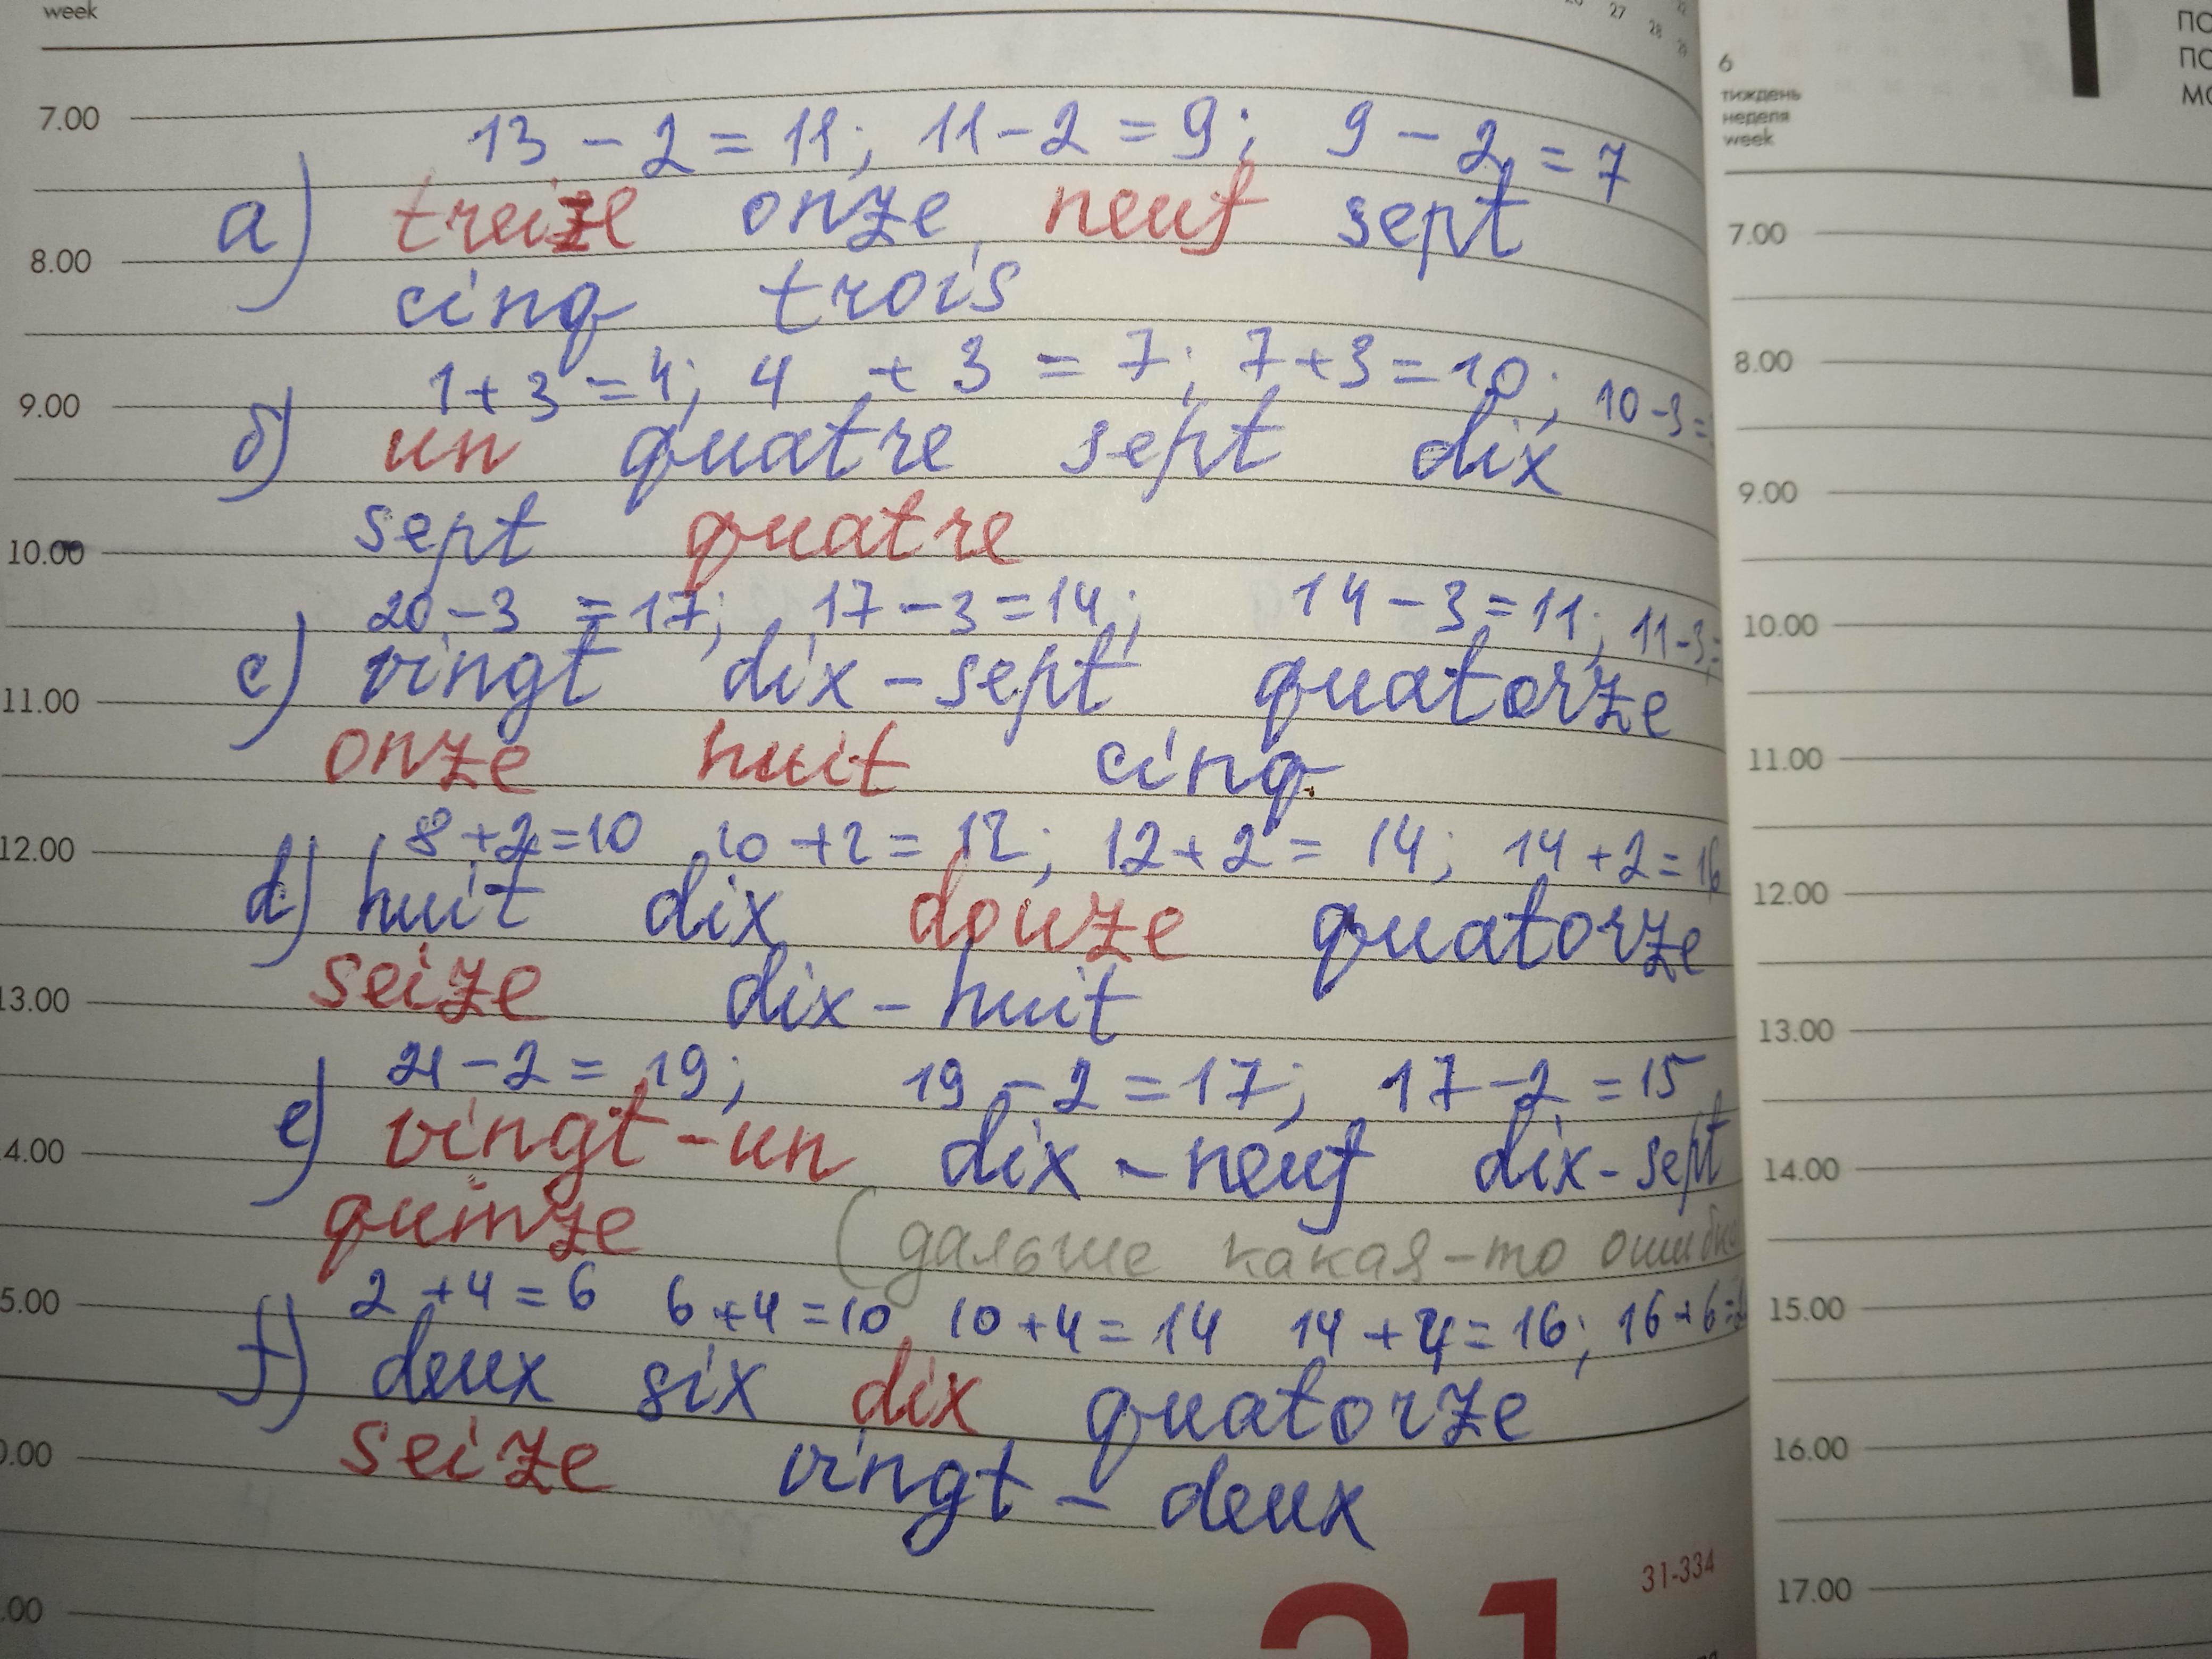 week
27
28
7.00
13 - 2 = 11; 11 - 2 = 9; 9 - 2 = 7
a) treize onze neuf sept
8.00
cinq trois
1 + 3 = 4; 4 + 3 = 7; 7 + 3 = 10; 10 - 3 =
9.00
б) un quatre sept dix
sept quatre
10.00
20 - 3 = 17; 17 - 3 = 14; 14 - 3 = 11; 11 - 3 =
c) vingt dix - sept quatorze
11.00
onze huit cinq
8 + 2 = 10 10 + 2 = 12; 12 + 2 = 14; 14 + 2 = 16
12.00
d) huit dix douze quatorze
seize dix - huit
13.00
21 - 2 = 19; 19 - 2 = 17; 17 - 2 = 15
e) vingt - un dix - neuf dix - sept
4.00
quinze (дальше какая-то ошибка
2 + 4 = 6 6 + 4 = 10 10 + 4 = 14 14 + 4 = 16; 16 + 6 =
5.00
f) deux six dix quatorze
seize vingt - deux
.00
.00
31-334
21
6
тиждень
неделя
week
ПО
ПО
МО
7.00
8.00
9.00
10.00
11.00
12.00
13.00
14.00
15.00
16.00
17.00